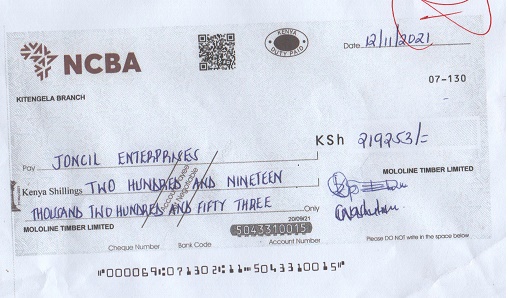 KENYA
DUTY PAID
NCBA
Date 12/11/2021
07-130
KITENGELA BRANCH
KSh 219253/=
Pay JONCIL ENTERPRISES
MOLOLINE TIMBER LIMITED
Kenya Shillings TWO HUNDRED AND NINETEEN
THOUSAND TWO HUNDRED AND FIFTY THREE Only
Account Payee
Not Negotiable
MOLOLINE TIMBER LIMITED
20/09/21
5043310015
Cheque Number Bank Code Account Number
Please DO NOT write in the space below
"000069"07130 2"11"5043310015"